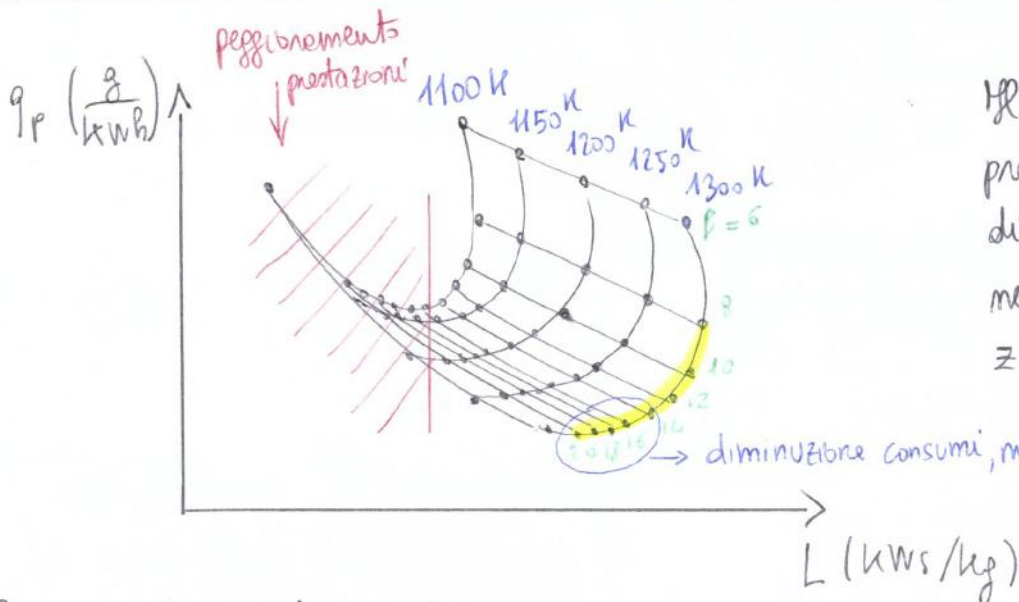 peggioramento
prestazioni
q_p (g/kWh)
1100 K
1150 K
1200 K
1250 K
1300 K
β = 6
8
10
12
14
16
18
20
diminuzione consumi, m
L (kWs/kg)